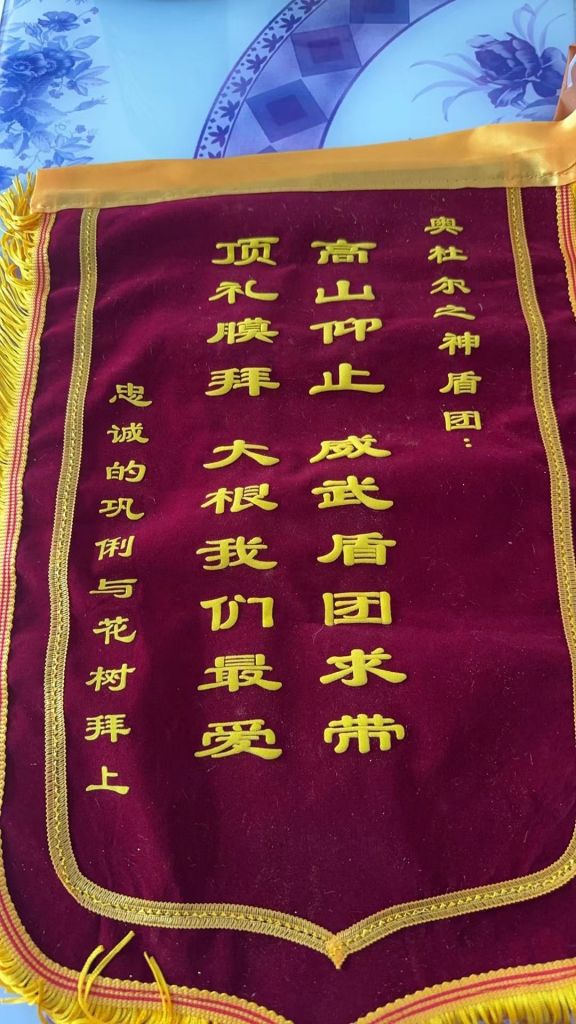 奥杜尔之神盾团：
高山仰止 威武盾团求带
顶礼膜拜 大根我们最爱
忠诚的巩俐与花树拜上